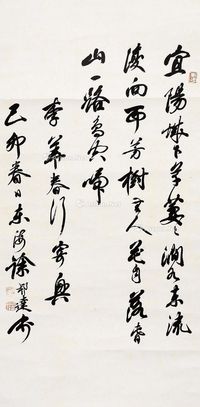 宜陽城下草萋々澗水東流
復向西芳樹無人花自落春
山一路鳥空啼
李華春行寄興
己卯春日東海徐邦達书